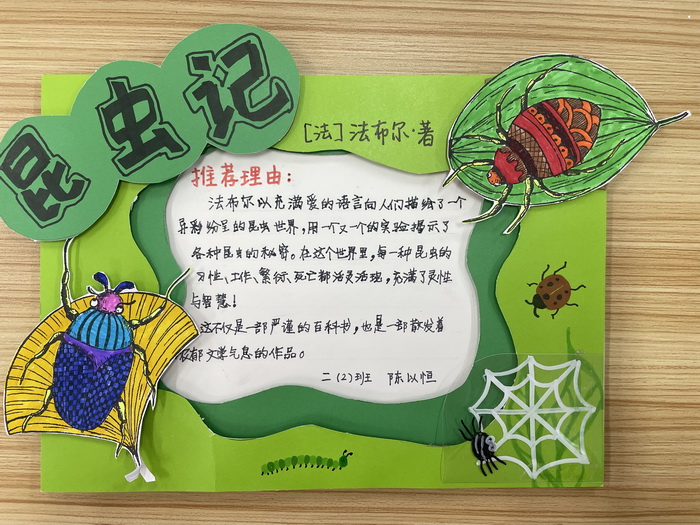 昆虫记
[法]法布尔·著
推荐理由:
法布尔以充满爱的语言向人们描绘了一个
异彩纷呈的昆虫世界,用一个又一个的实验揭示了
各种昆虫的秘密。在这个世界里,每一种昆虫的
习性、工作、繁衍、死亡都活灵活现,充满了灵性
与智慧!
这不仅是一部严谨的百科书,也是一部散发着
浓郁文学气息的作品。
二(2)班 陈以恒